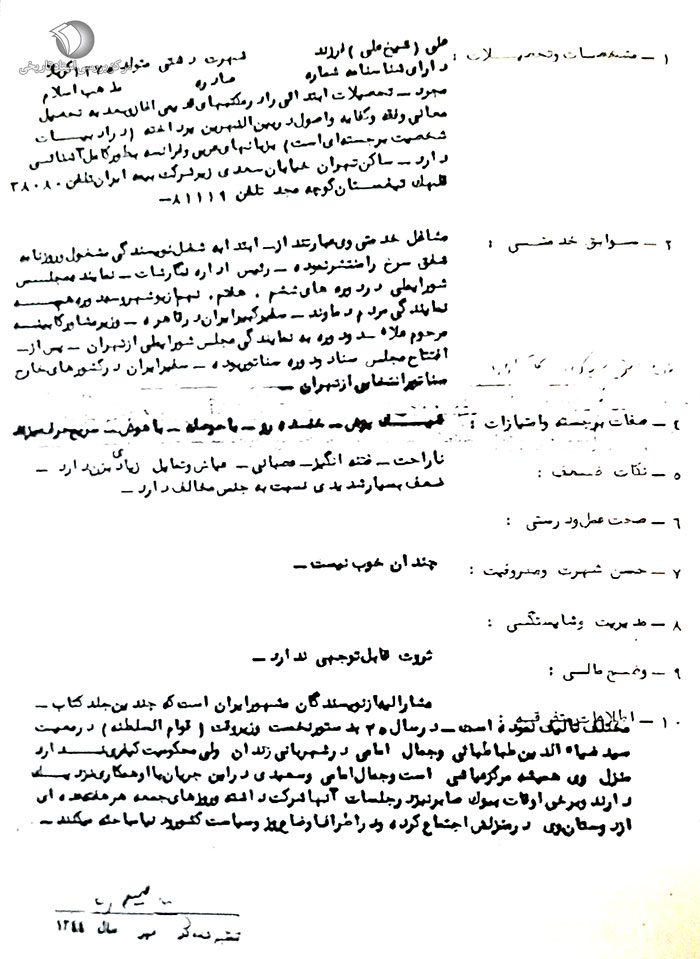 مرکز بررسی اسناد تاریخی
۱ – مشخصات وتحصیلات : علی (شیخ علی) فرزند شهرت دشتی متولد
دارای شناسنامه شماره صادره مذهب اسلام
مجرد – تحصیلات ابتدائی را در مکتبهای قدیمی اغاز بعد به تحصیل
معانی وفقه وکفایه واصول در بین النهرین پرداخته (در ادبیات
شخصیت برجسته ای است) بزبانهای عربی وفرانسه بطور کامل آشنائی
دارد – ساکن تهران خیابان سعدی زیر شرکت بیمه ایران تلفن ۳۸۰۸۰
قلهک تیغستان کوچه مجد تلفن ۸۱۱۱۹–
۲ – سوابق خدمتی : مشاغل خدمتی وی عبارتند از – ابتدا به شغل نویسندگی مشغول وروزنامه
شفق سرخ را منتشر نموده – رئیس اداره نگارشات – نماینده مجلس
شورایملی در دوره های ششم . هفتم . نهم از بوشهر وسه دوره هم به
نمایندگی مردم دماوند – سفیر کبیر ایران در قاهره – وزیر مشاور کابینه
مرحوم علاء دو دوره به نمایندگی مجلس شورایملی از تهران – پس از –
افتتاح مجلس سنا دو دوره سناتور بوده – سفیر ایران در کشورهای خارج
سناتور انتخابی از تهران –
۴ – صفات برجسته وامتیازات : خنده رو – با حوصله – باهوش – سریع
۵ – نکات ضعف : ناراحت – فتنه انگیز – عصبانی – عیاش وتمایل زیادی بزن دارد –
ضعف بسیار شدیدی نسبت به جنس مخالف دارد –
۶ – صحت عمل ودرستی :
۷ – حسن شهرت ومعروفیت : چندان خوب نیست –
۸ – مدیریت وشایستگی :
۹ – وضع مالی : ثروت قابل توجهی ندارد –
۱۰ – اطلاعات متفرقه : مشارالیه از نویسندگان مشهور ایران است که چندین جلد کتاب –
مختلف تالیف نموده است – در سال ۲۵ بدستور نخست وزیر وقت (قوام السلطنه) در معیت
سید ضیاء الدین طباطبائی وجمال امامی در شهربانی زندان ولی محکومیت کیفری ندارد
منزل وی همیشه مرکز عیاشی است وجمال امامی وسعیدی در این جریان با او همکاری نزدیک
دارند وبرخی اوقات بیوک صابر نیز در جلسات آنها شرکت داشته وروزهای جمعه هر هفته عده ای
از دوستان وی در منزلش اجتماع کرده ودر اطراف اوضاع روز وسیاست کشور مباحثه میکنند –
تهیه شده در مهر سال ۱۳۴۴